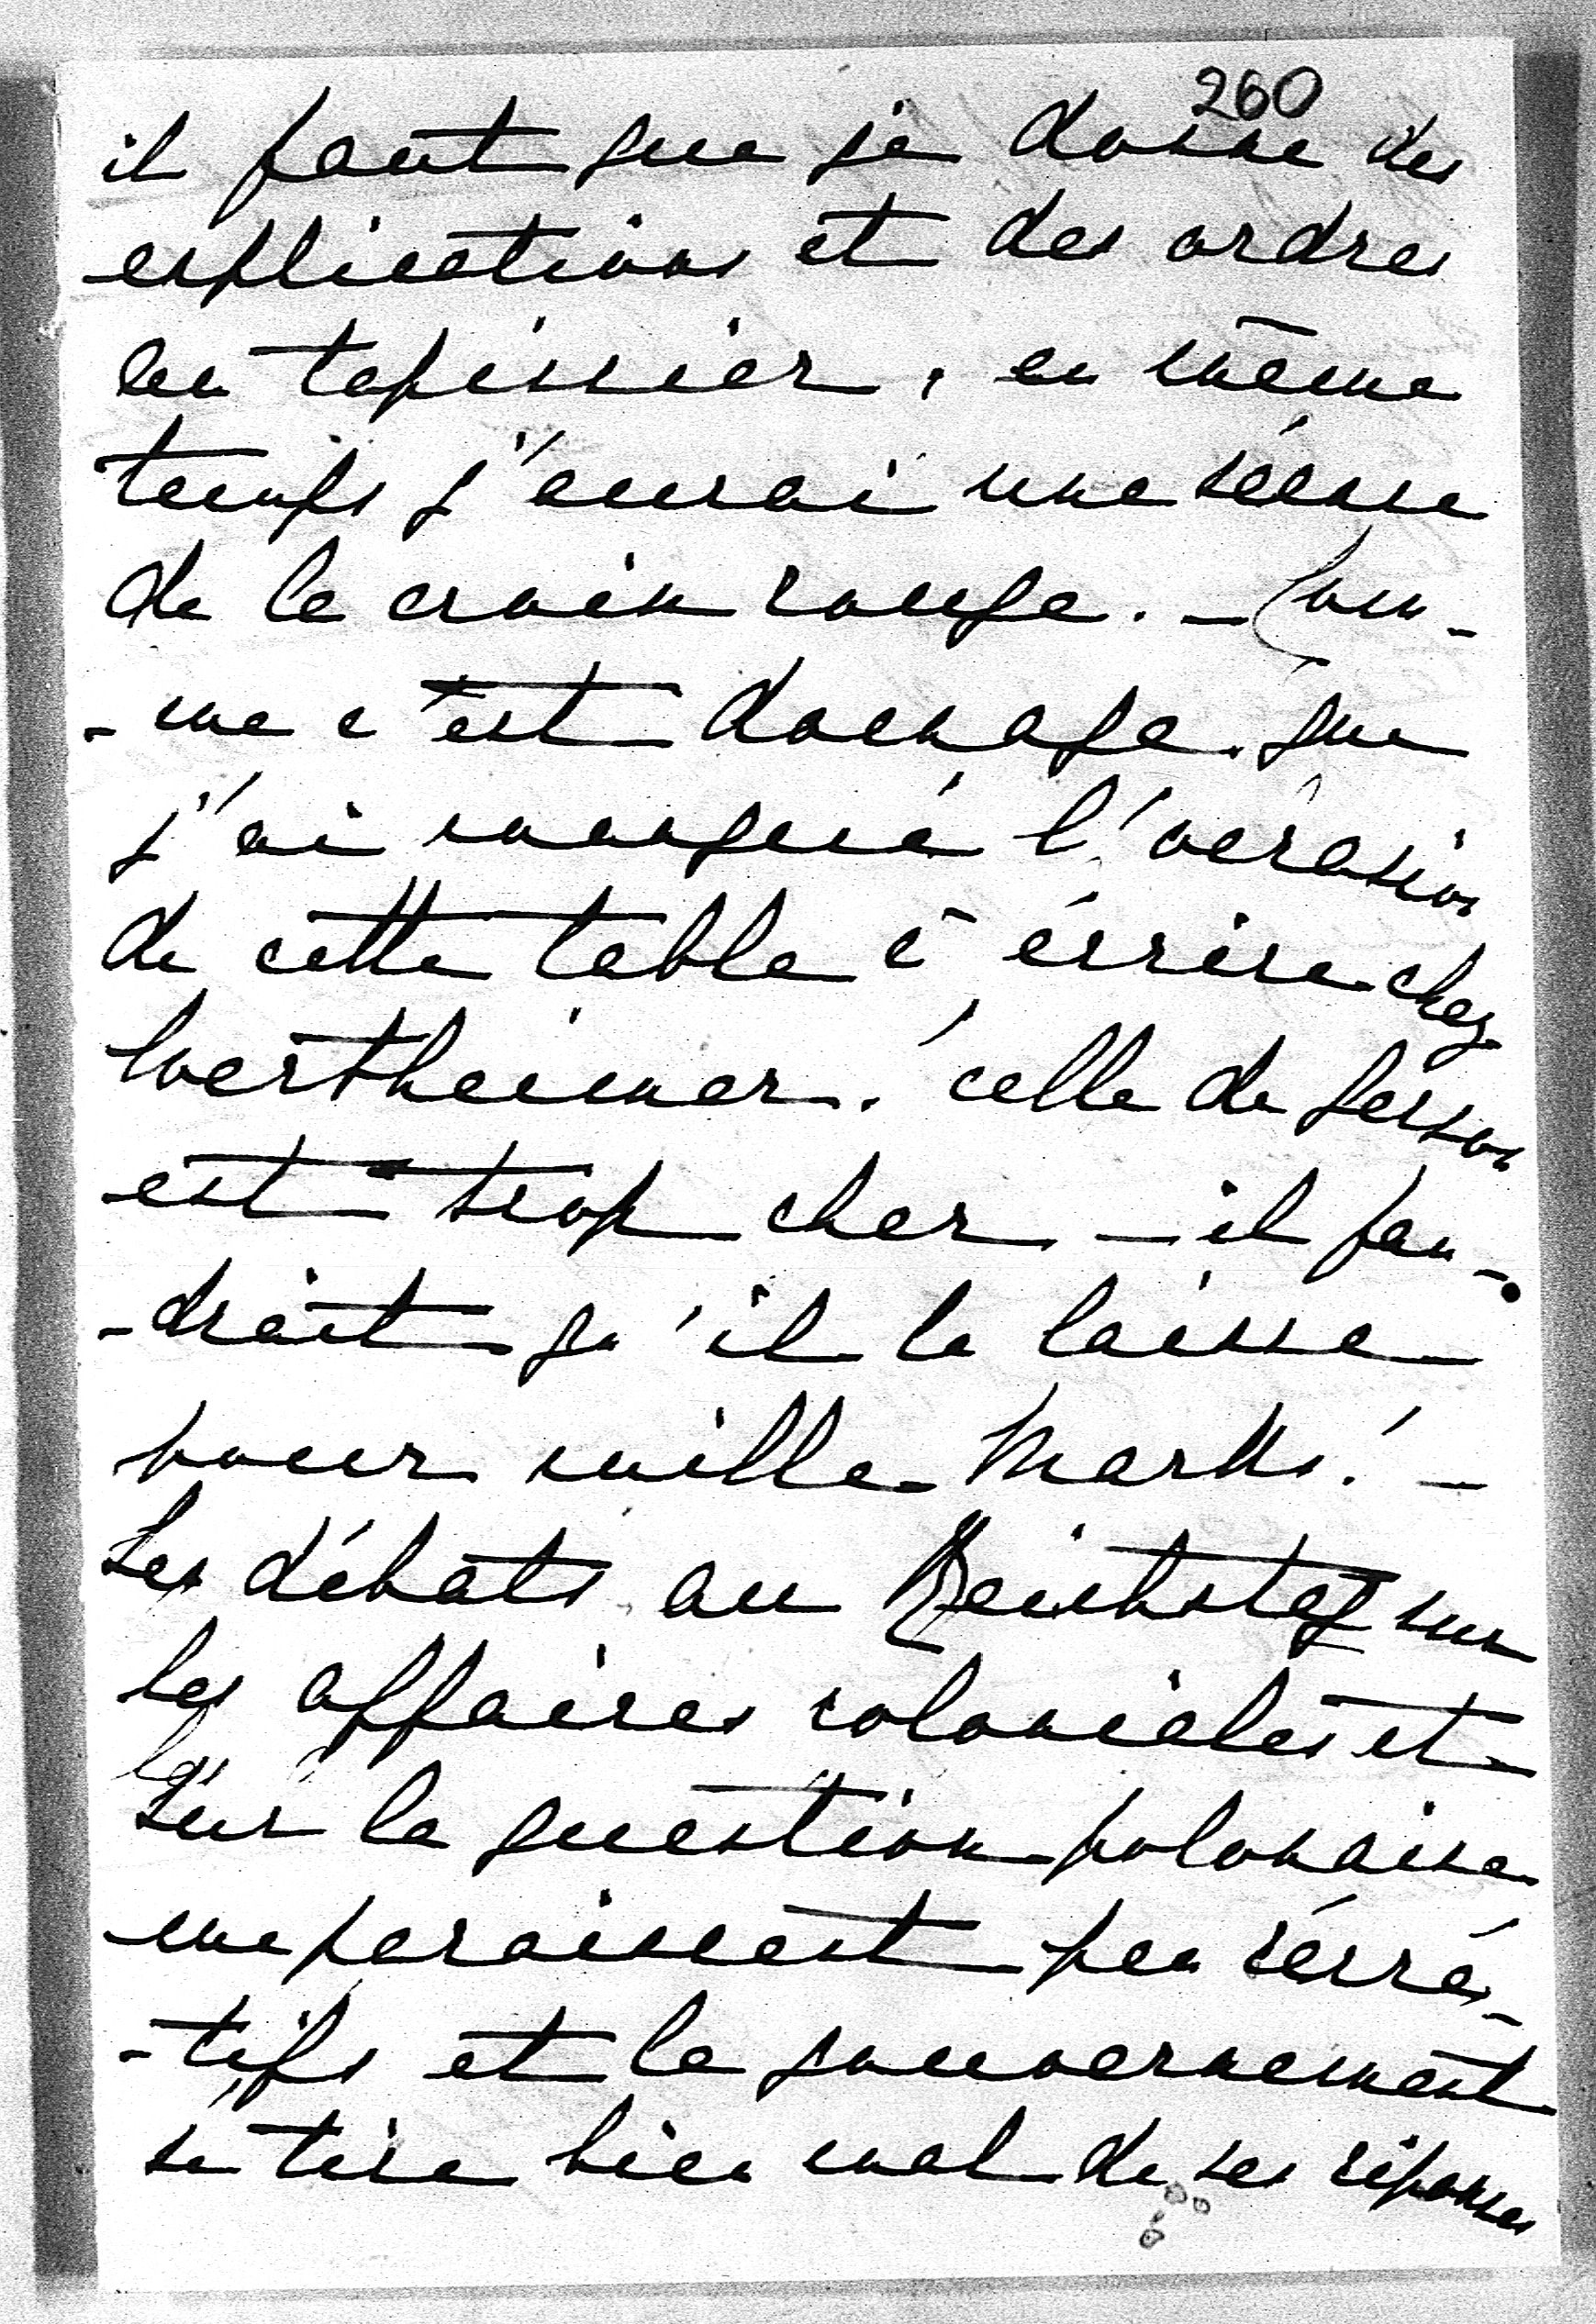 260
il faut que je donne des
explications et des ordres
au tapissier, en même
temps j'aurai une séance
de la croix rouge. – Com-
-me c'est domage que
j'ai manqué l'occasion
de cette table à écrire chez
Wertheimer. celle de
est trop cher – il fau-
-drait qu'il la laisse
pour mille Marks! –
Les débats au Reichstag sur
les affaires coloniales et
sur la question polonaise
me paraissent peu récré-
-tifs et le gouvernement
se tire bien mal de ses réponses